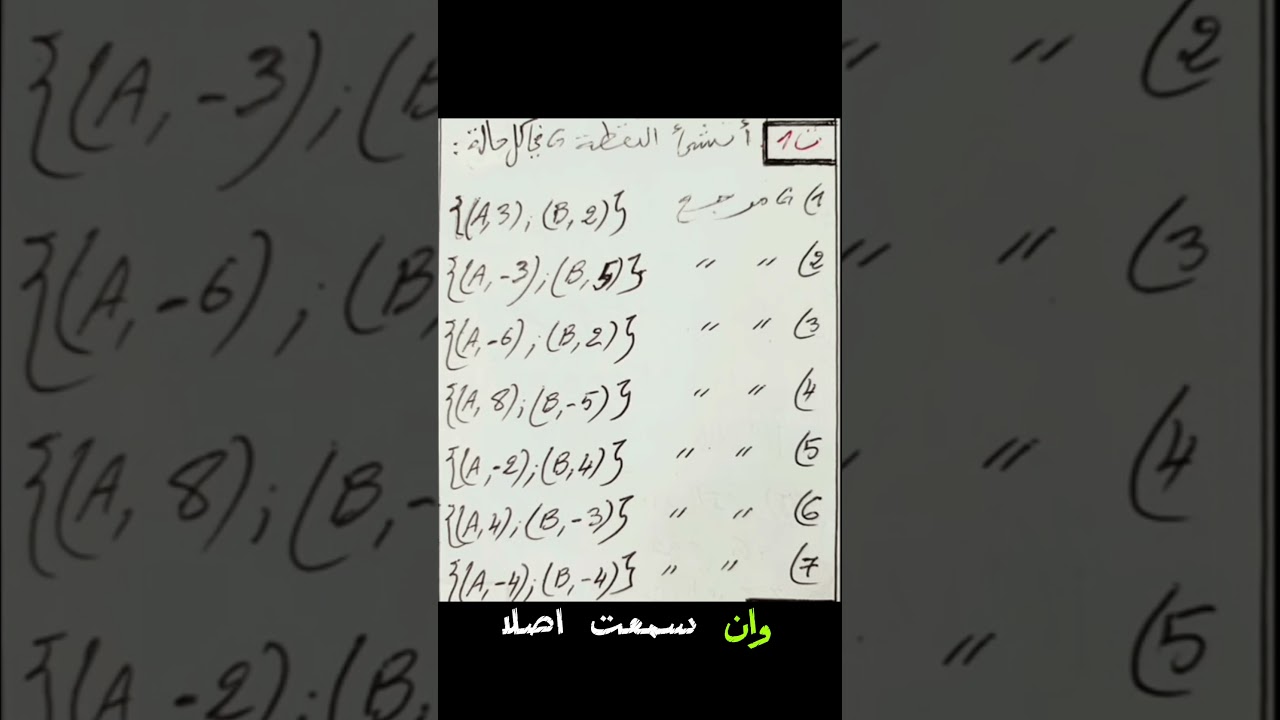 ت1 أنشئ النقطة G في كل حالة :
1) G مرجح {(A,3);(B,2)}
2) " " {(A,-3);(B,5)}
3) " " {(A,-6);(B,2)}
4) " " {(A,8);(B,-5)}
5) " " {(A,-2);(B,4)}
6) " " {(A,4);(B,-3)}
7) " " {(A,-4);(B,-4)}
وان سمعت اصلا